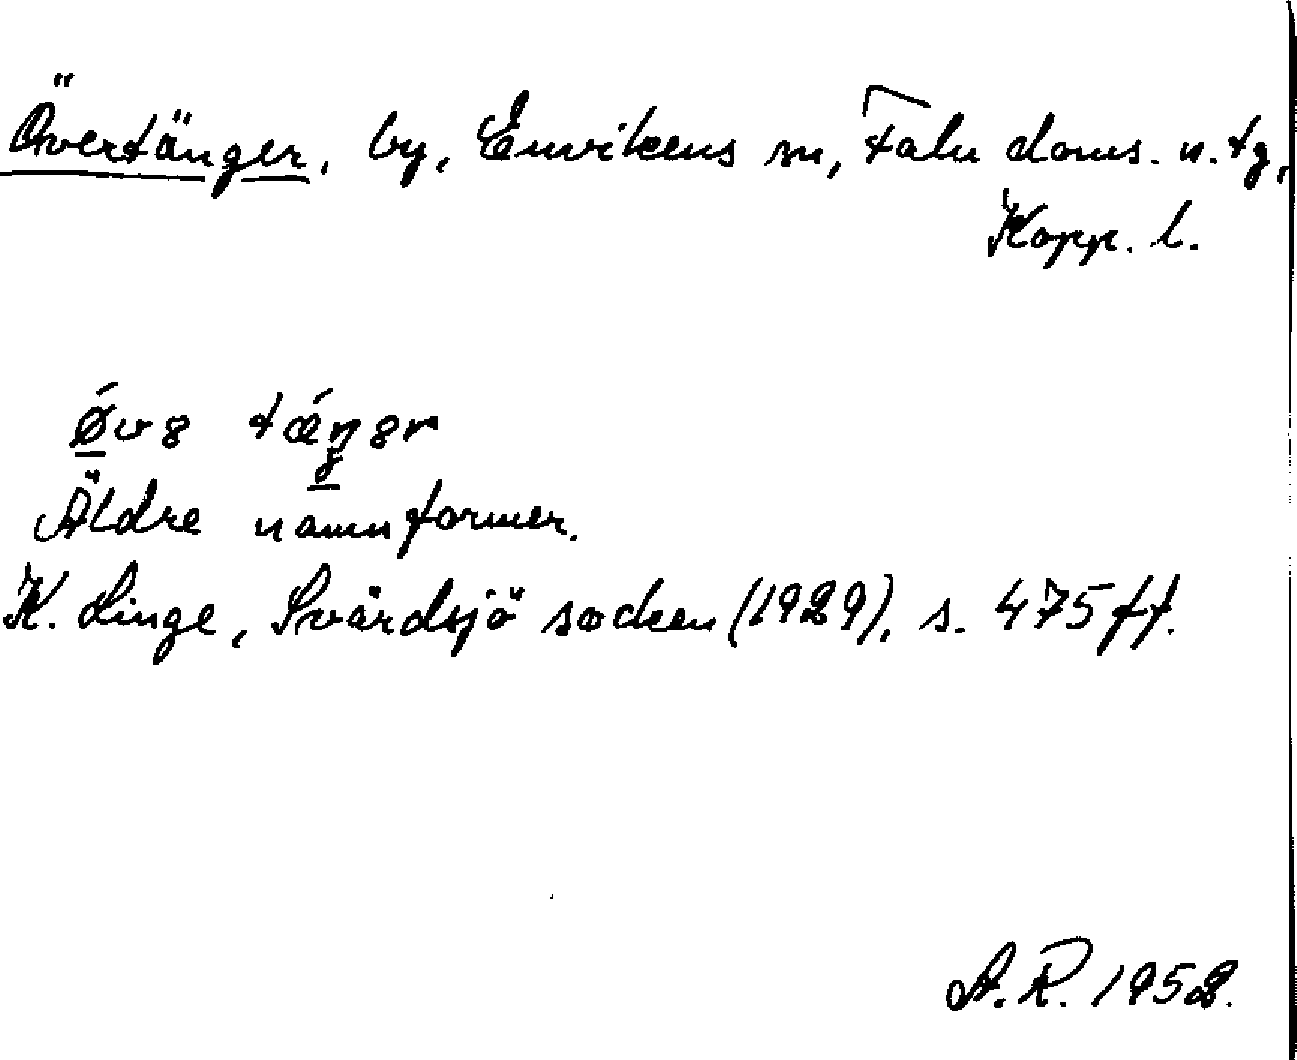 Övertänger, by, Enviken​s sn, Falu doms. n. tg,
Kopp. l.
Äldre namnformer.
K. Linge, Svärdsjö socken (1929), s. 475 ff.
A.R. 1952.